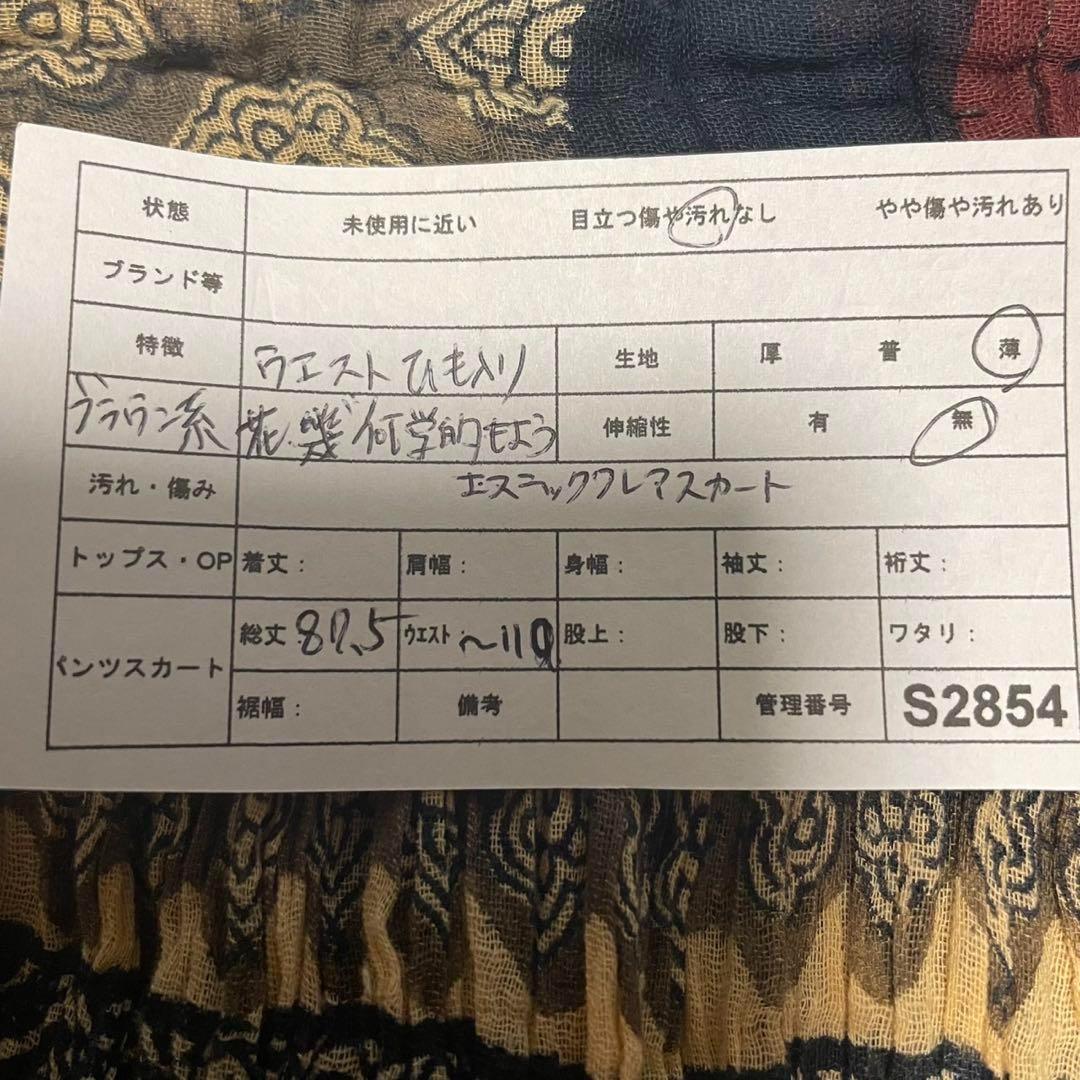 状態 未使用に近い 目立つ傷や汚れなし やや傷や汚れあり
ブランド等
特徴 ウエストひも入り 生地 厚 普 薄
ブラウン系 花.幾何学的もよう 伸縮性 有 無
汚れ・傷み エスニックフレアスカート
トップス・OP 着丈: 肩幅: 身幅: 袖丈: 裄丈:
パンツスカート 総丈 87.5 ウエスト: 〜110 股上: 股下: ワタリ:
裾幅: 備考 管理番号 S2854